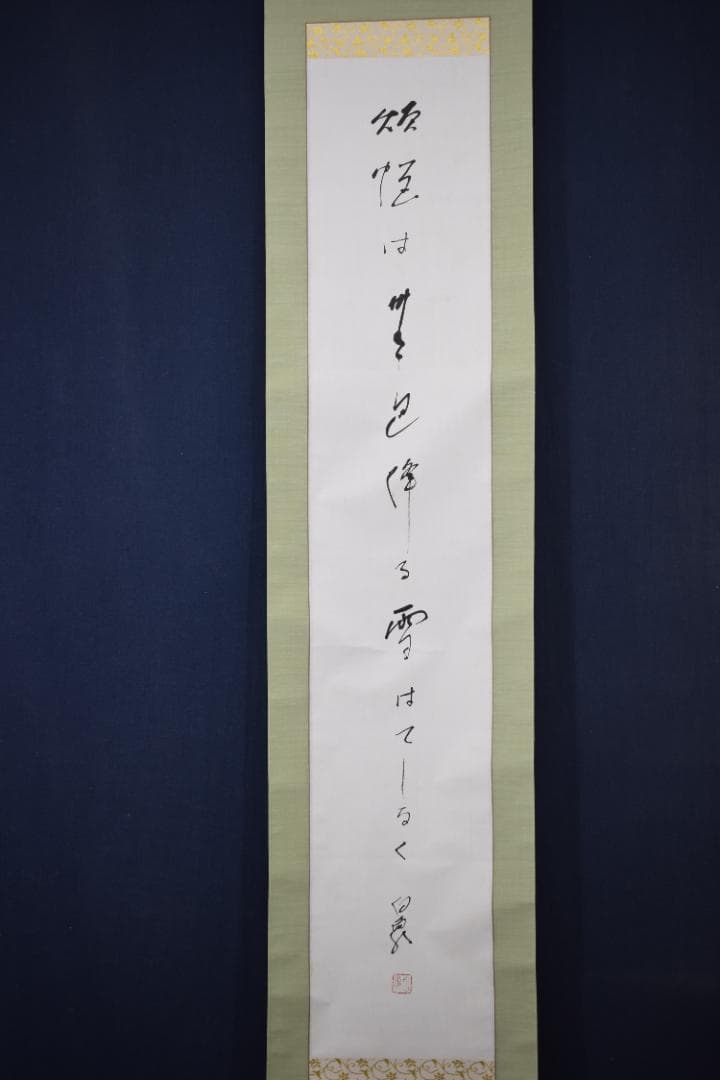 煩悩は無色降る雪はてしなく